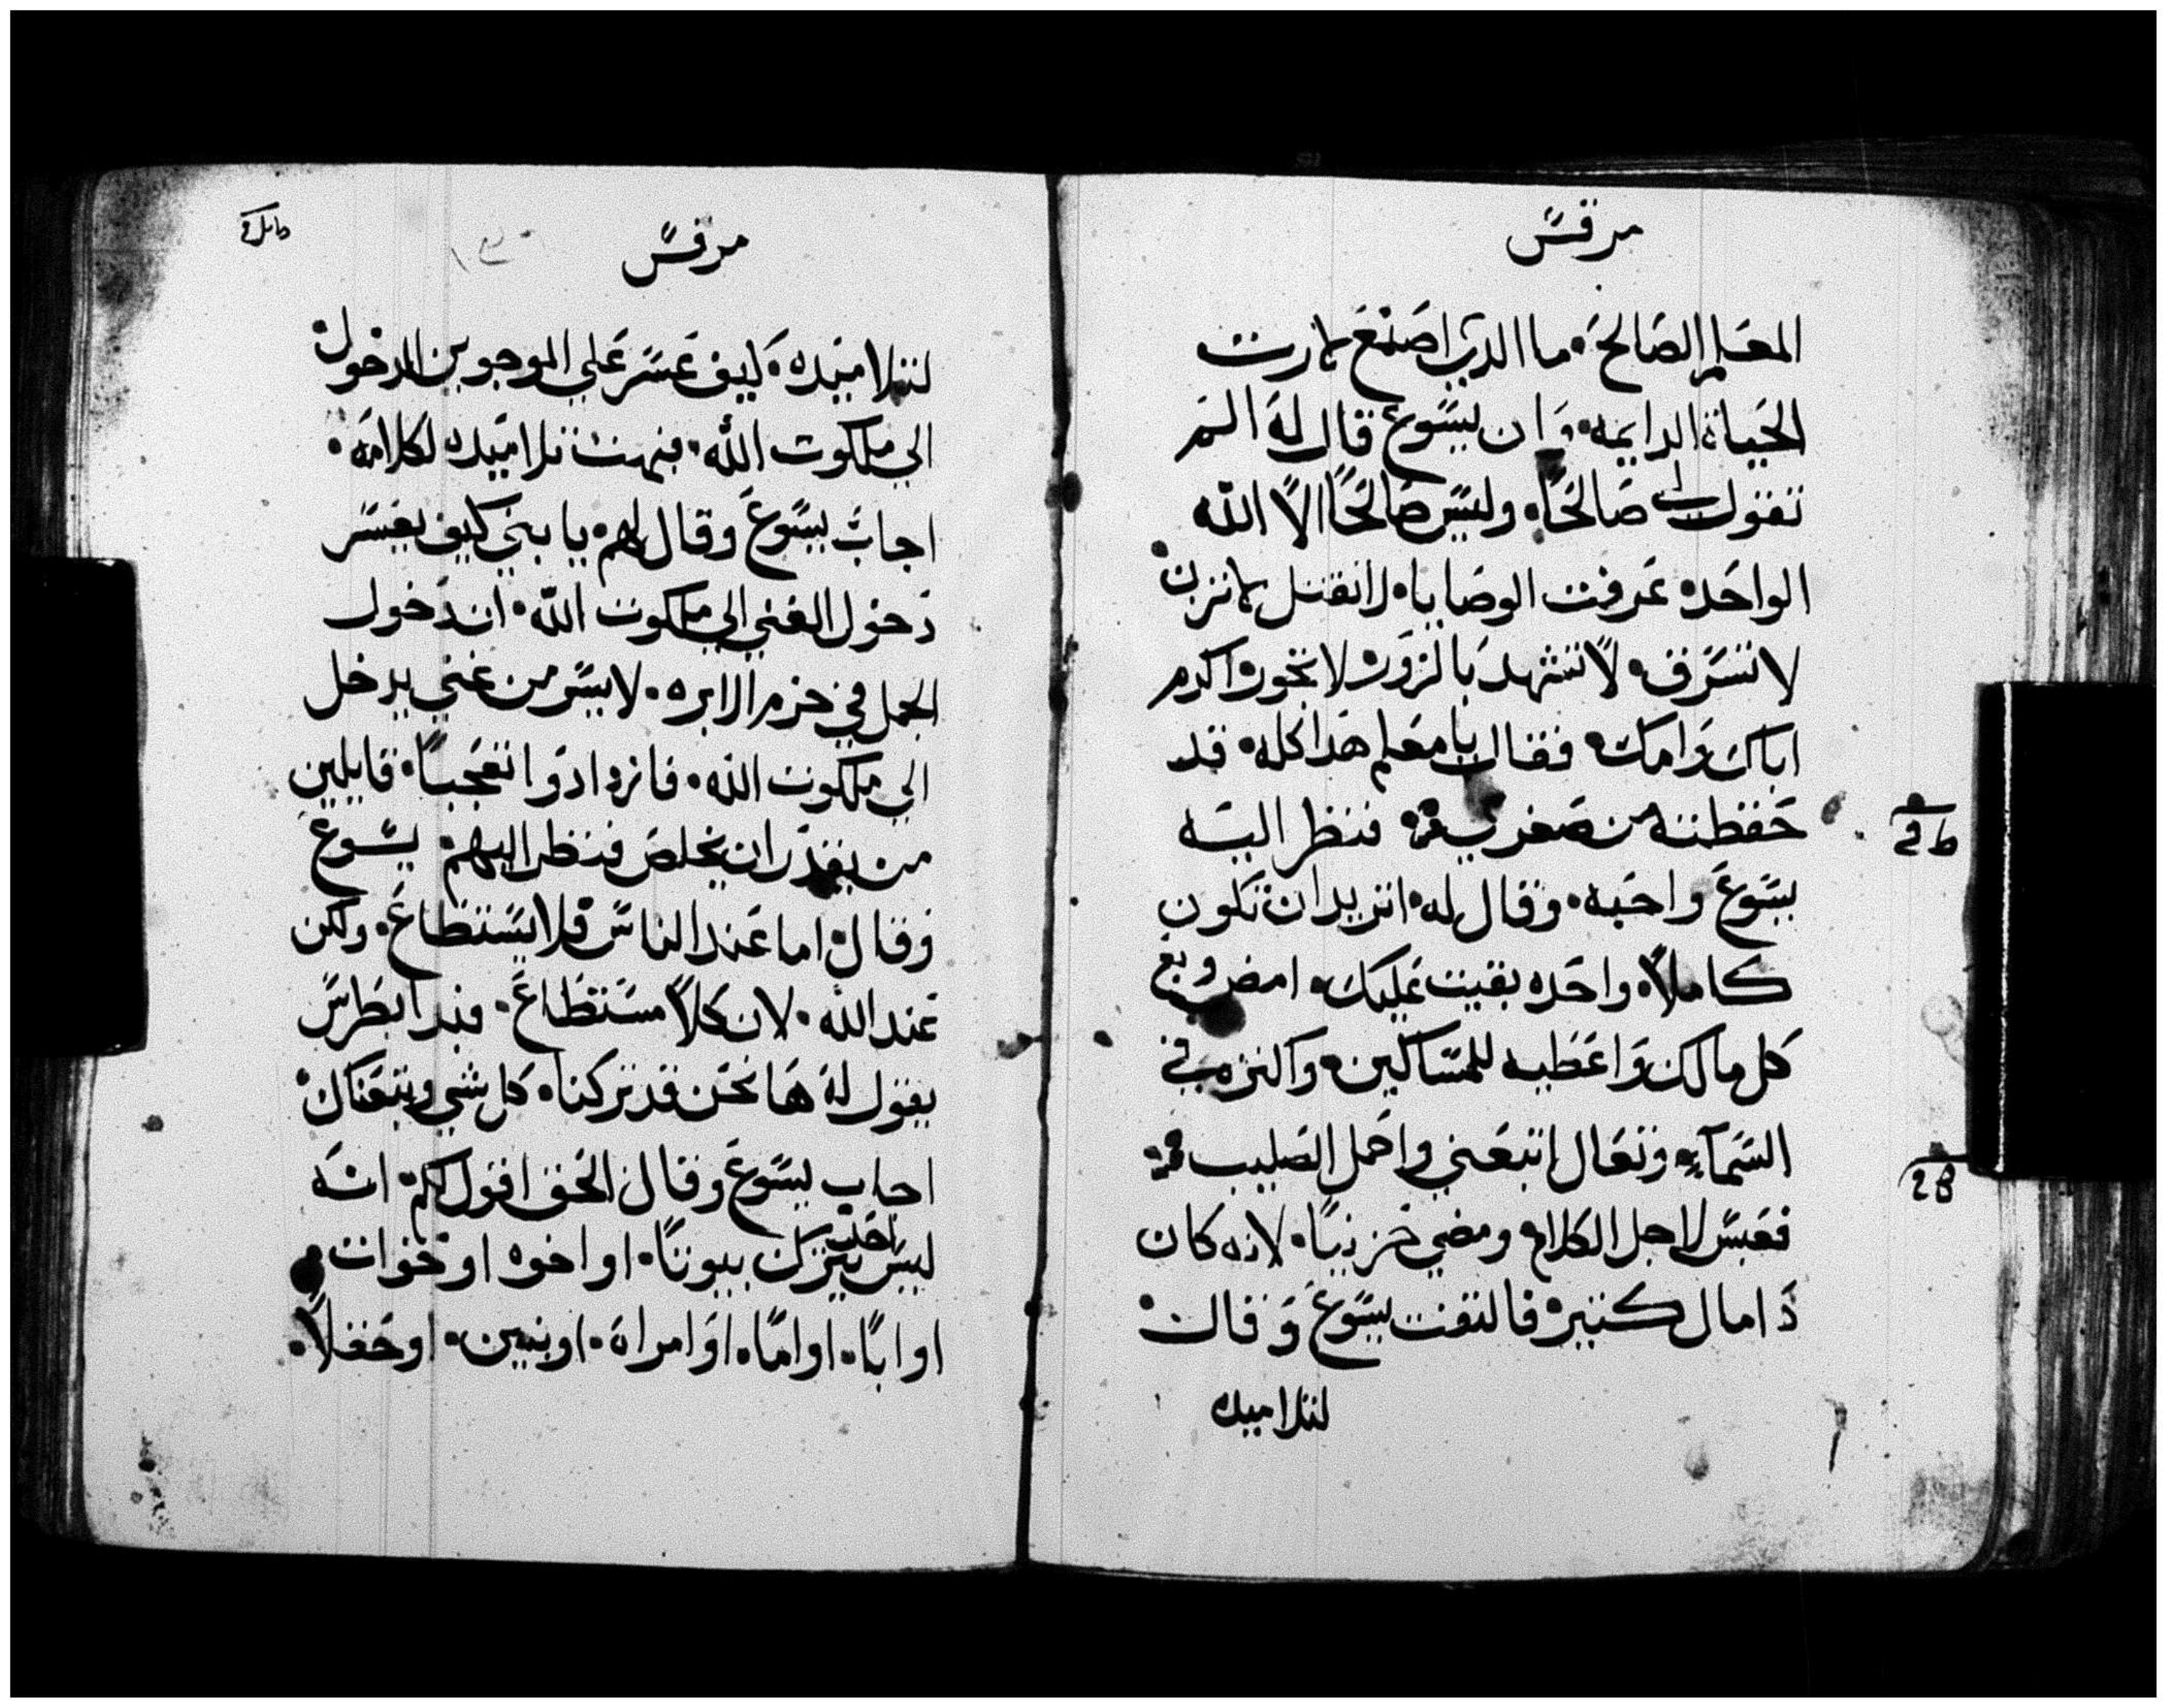 مرقس
المعلم الصالح. ما الدي اصنع لارت
الحياة الدايمه. وان يسوع قال له الم
تقول لى صالحًا. وليس صالحًا الا الله
الواحده عرفت الوصايا. لاتقتل لاتزن.
لا تسرق. لا تشهد بالزور. لا تجور. اكرم
اباك وامك. فقال يا معلم هدا كله. قد
حفظته من صغري. فنظر اليه
يسوع واحبه. وقال له. اتريد ان تكون
كاملاً. واحده بقيت عليك. امض وبع
كل مالك واعطيه للمساكين. واكنز في
السمآء. وتعال اتبعني واحمل الصليب.
فعبس لاجل الكلام ومضي حزينًا. لانه كان
دا مال كتير. فالتفت يسوع وقال.
لتلاميده
مرقس
لتلاميده. كيف عسر علي الموجوين الدخول.
الي ملكوت الله. فبهت تلاميده لكلامه.
اجاب يسوع وقال لهم. يا بني كيف يعسر
دخول الغني الي ملكوت الله. ان دخول
الجمل في خزم الابره. لايسر من غني يدخل
الي ملكوت الله. فازدادوا تعجبًا. قايلين
من يقدر ان يخلص فنظر اليهم يسوع
وقال. اما عند الناس فلا يستطاع. ولكن
عند الله. لان كلاً مستطاع. فبدا بطرس
يقول له هانحن قد تركنا. كل شي وتبعناك.
اجاب يسوع وقال الحق اقول لكم. انه
ليس احد يترك بيوتًا. او اخوه او خوات.
او ابًا. او امًا. او امراه. او بنين. او حقلاً.